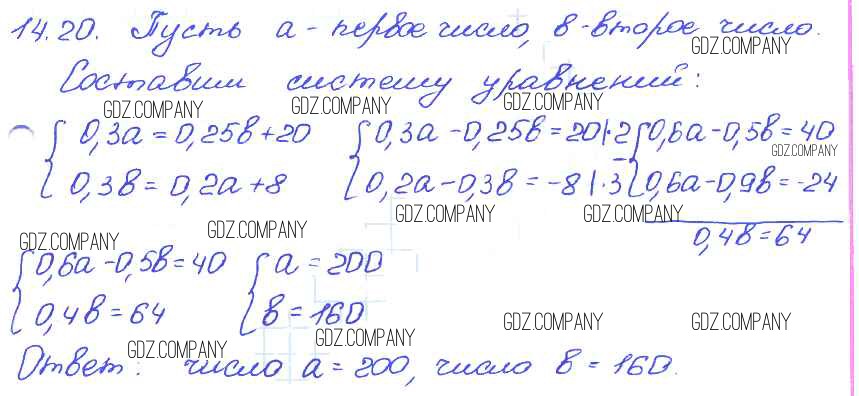 14.20. Пусть а - первое число, в - второе число.
GDZ.COMPANY
Составим систему уравнений:
GDZ.COMPANY GDZ.COMPANY GDZ.COMPANY
{ 0,3а = 0,25в + 20 { 0,3а - 0,25в = 20 |·2 { 0,6а - 0,5в = 40
GDZ.COMPANY
0,3в = 0,2а + 8 0,2а - 0,3в = -8 |·3 - 0,6а - 0,9в = -24
GDZ.COMPANY GDZ.COMPANY
GDZ.COMPANY GDZ.COMPANY 0,4в = 64
{ 0,6а - 0,5в = 40 { а = 200
0,4в = 64 в = 160
GDZ.COMPANY GDZ.COMPANY
GDZ.COMPANY GDZ.COMPANY
Ответ: число а = 200, число в = 160.